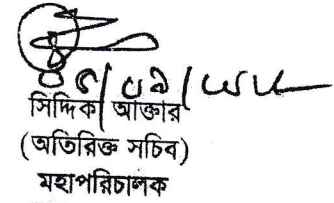 সিদ্দিক আক্তার
(অতিরিক্ত সচিব)
মহাপরিচালক